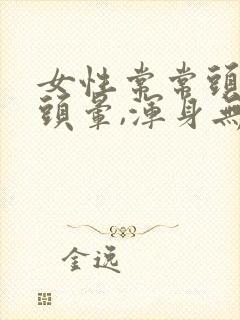 女性常常頭
頭暈,渾身無
金逸